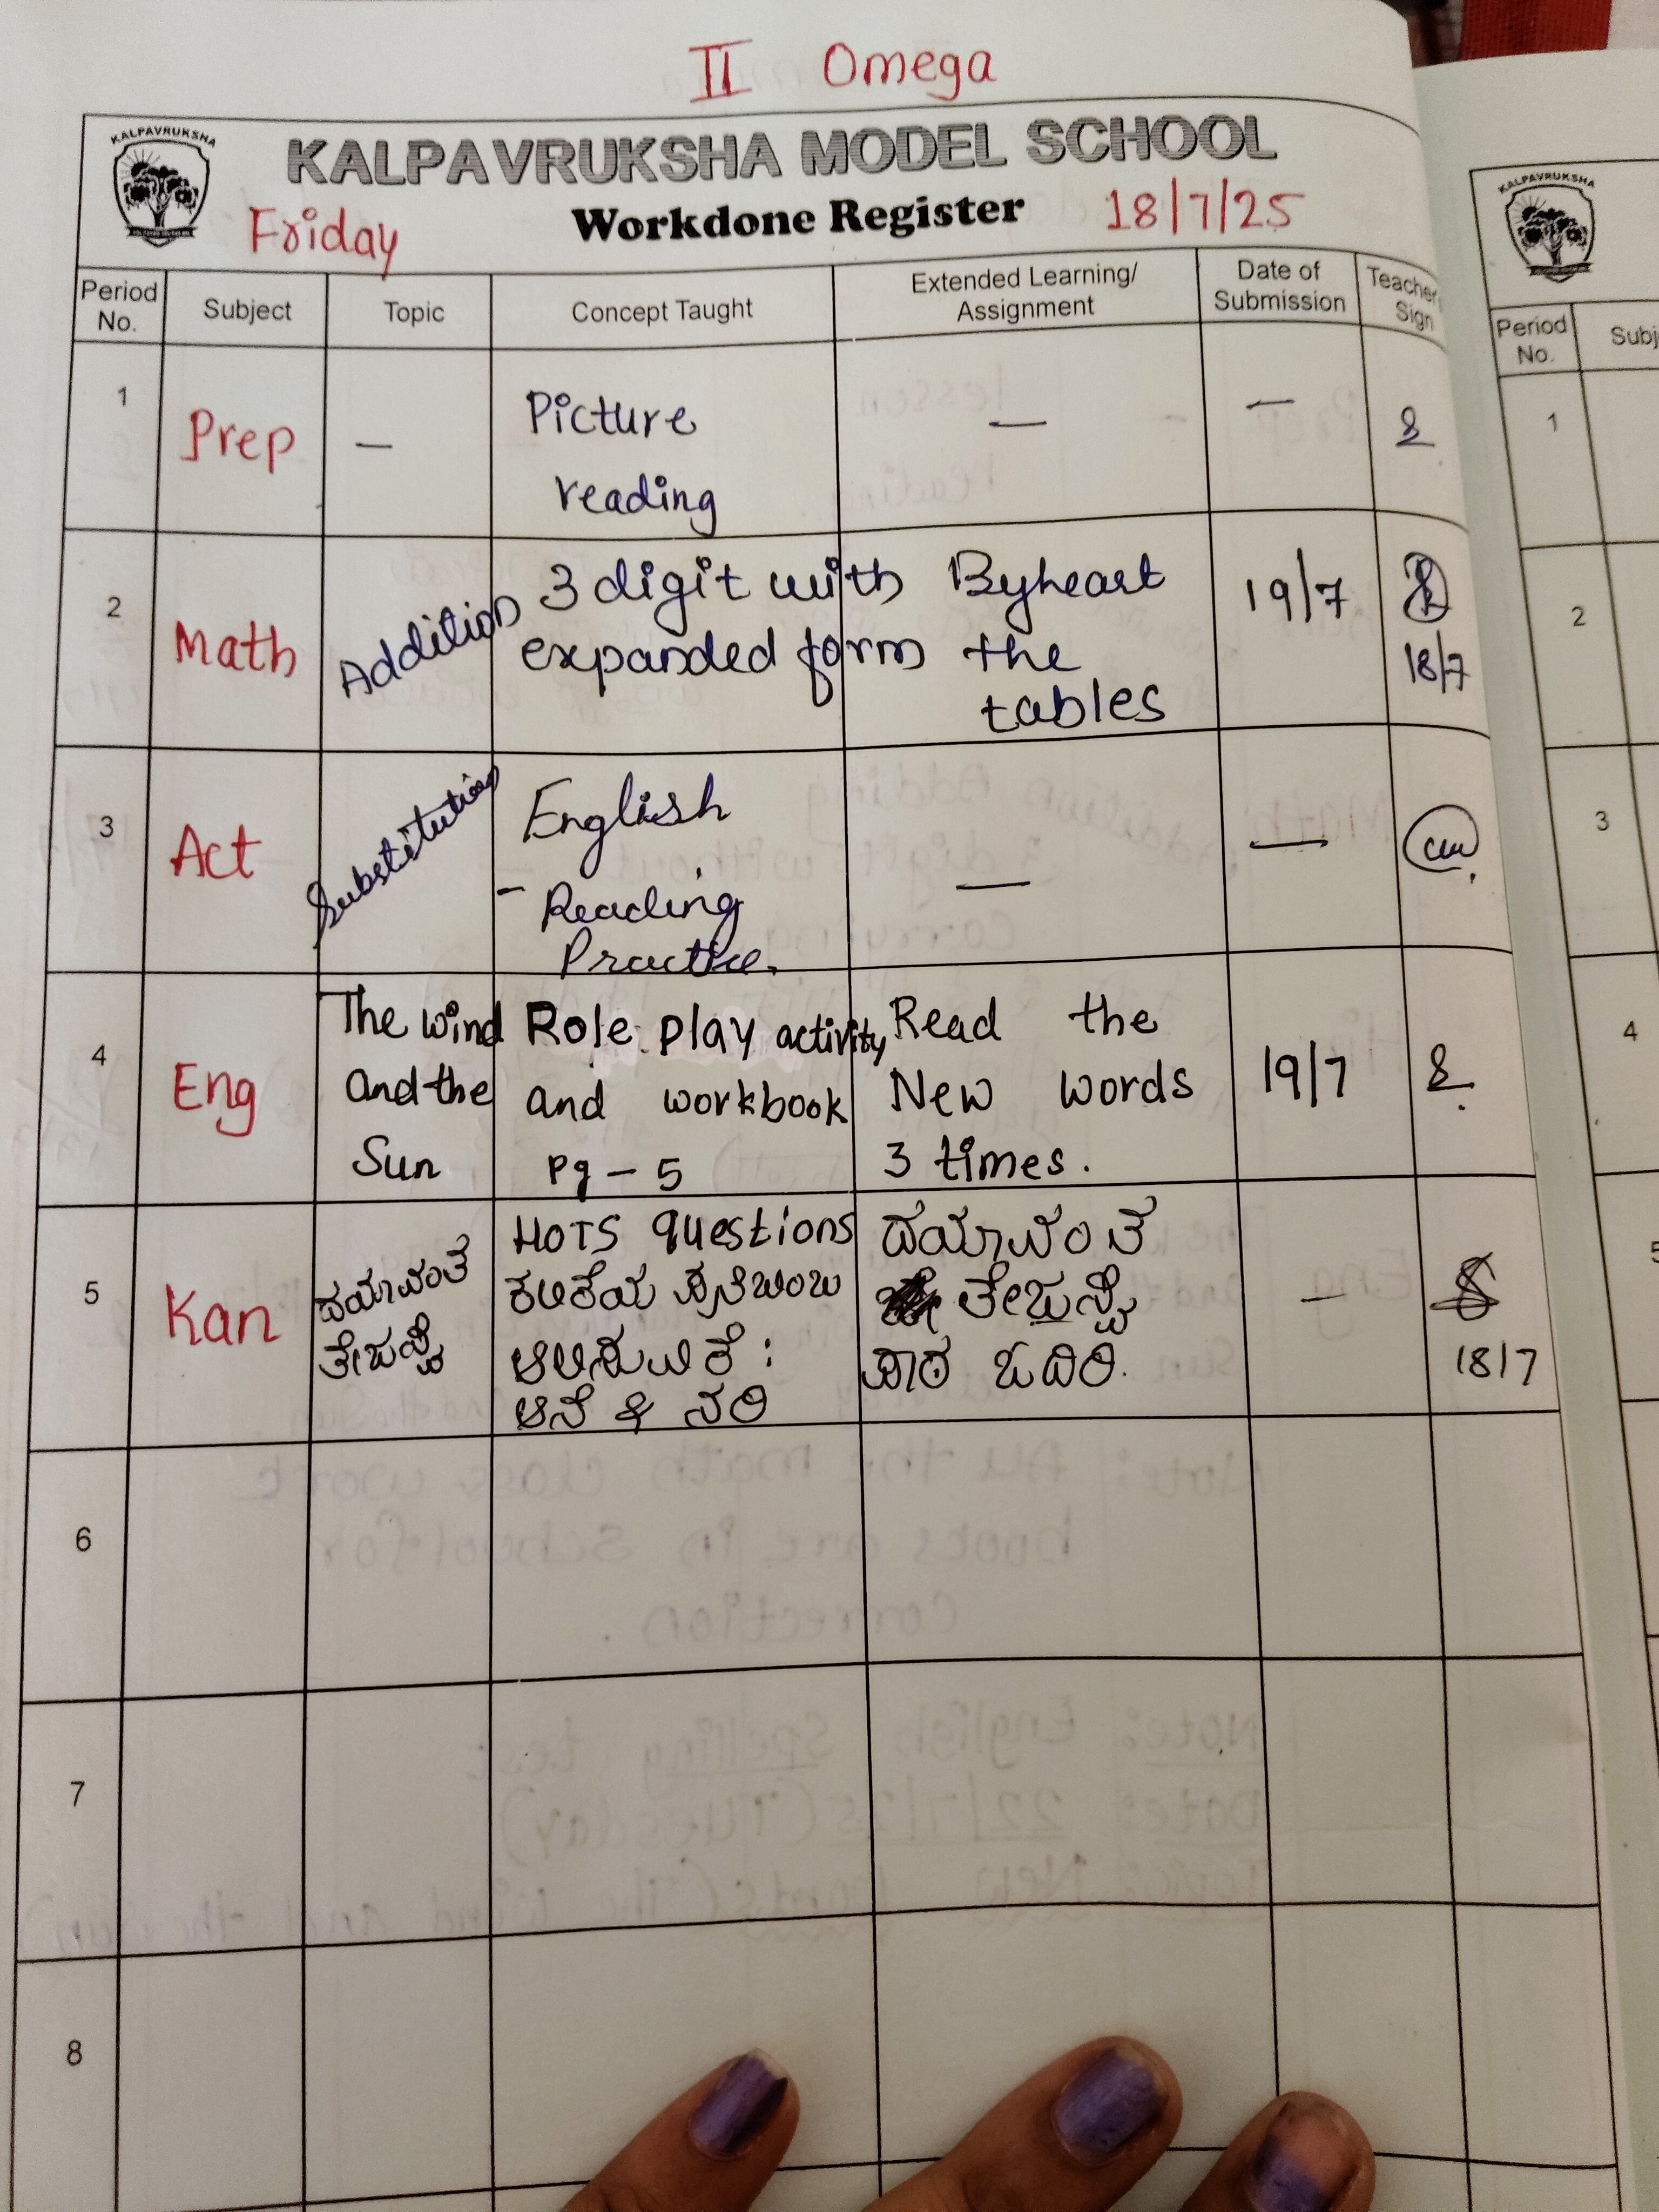 II Omega
KALPAVRUKSHA
KALPAVRUKSHA MODEL SCHOOL
Friday Workdone Register 18/7/25
Period No. Subject Topic Concept Taught Extended Learning/ Assignment Date of Submission Teacher Sign
1 Prep — Picture — —
reading
2 Math Addition 3 digit with Byheart 19/7
expanded form the 18/7
tables
3 Act Substitution English — —
- Reading
Practice.
4 Eng The wind Role play activity Read the 19/7
and the and workbook New words
Sun pg - 5 3 times.
5 Kan ದಯಾವಂತ HOTS questions ದಯಾವಂತ —
ಕಲಿಕೆಯ
ಆಲಿಸುವಿಕೆ :
ಆನೆ & ನರಿ ಪಾಠ ಓದಿರಿ. 18/7
6
7
8
KALPAVRUKSHA
Period No.
1
2
3
4
5